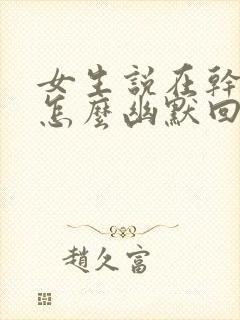 女生説在幹
怎麼幽默回
趙久富